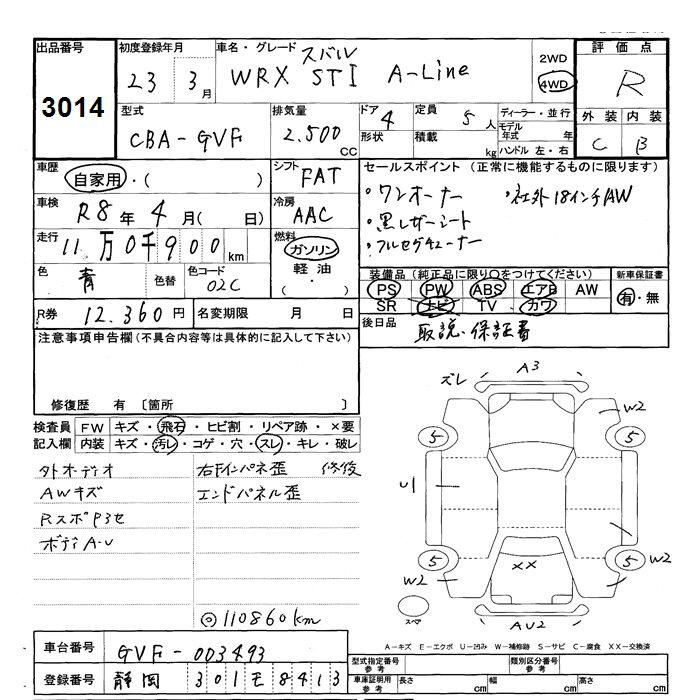 出品番号 初度登録年月 車名・グレード スバル 2WD 評価点
3014 23 3月 WRX STI A-Line 4WD R
型式 排気量 ドア 4 定員 5人 ディーラー・並行 外装 内装
CBA-GVF 2.500 CC 形状 積載 kg モデル年式 年 C B
ハンドル 左・右
車歴 自家用・( ) シフト FAT セールスポイント (正常に機能するものに限ります)
車検 R8年 4月( 日) 冷房 AAC ・ワンオーナー ・社外18インチAW
・黒レザーシート
走行 11万0千900km 燃料 ガソリン ・フルセグチューナー
軽油・( )
色 青 色替 色コード 02C 装備品 (純正品に限り○をつけてください) 新車保証書
PS PW ABS エアB AW 有・無
SR ナビ TV カワ
R券 12.360円 名変期限 月 日 後日品 取説、保証書
注意事項申告欄(不具合内容等は具体的に記入して下さい)
修復歴 有 〔箇所 〕
検査員 FW キズ・飛石・ヒビ割・リペア跡・×要
記入欄 内装 キズ・汚レ・コゲ・穴・スレ・キレ・破レ
外オーディオ 右Fインパネ歪 修復
AWキズ エンドパネル歪
RスポP3セ
ボディA-U
◎110860km
ズレ A3
W2
5 5
U1
5 5 W2
W2 XX
スペア AU2
A-キズ E-エクボ U-凹み W-補修跡 S-サビ C-腐食 XX-交換済
車台番号 GVF-003493 型式指定番号 参考 類別区分番号 参考
登録番号 静岡 301 モ 8413 車庫証明用 参考 長さ cm 幅 cm 高さ cm